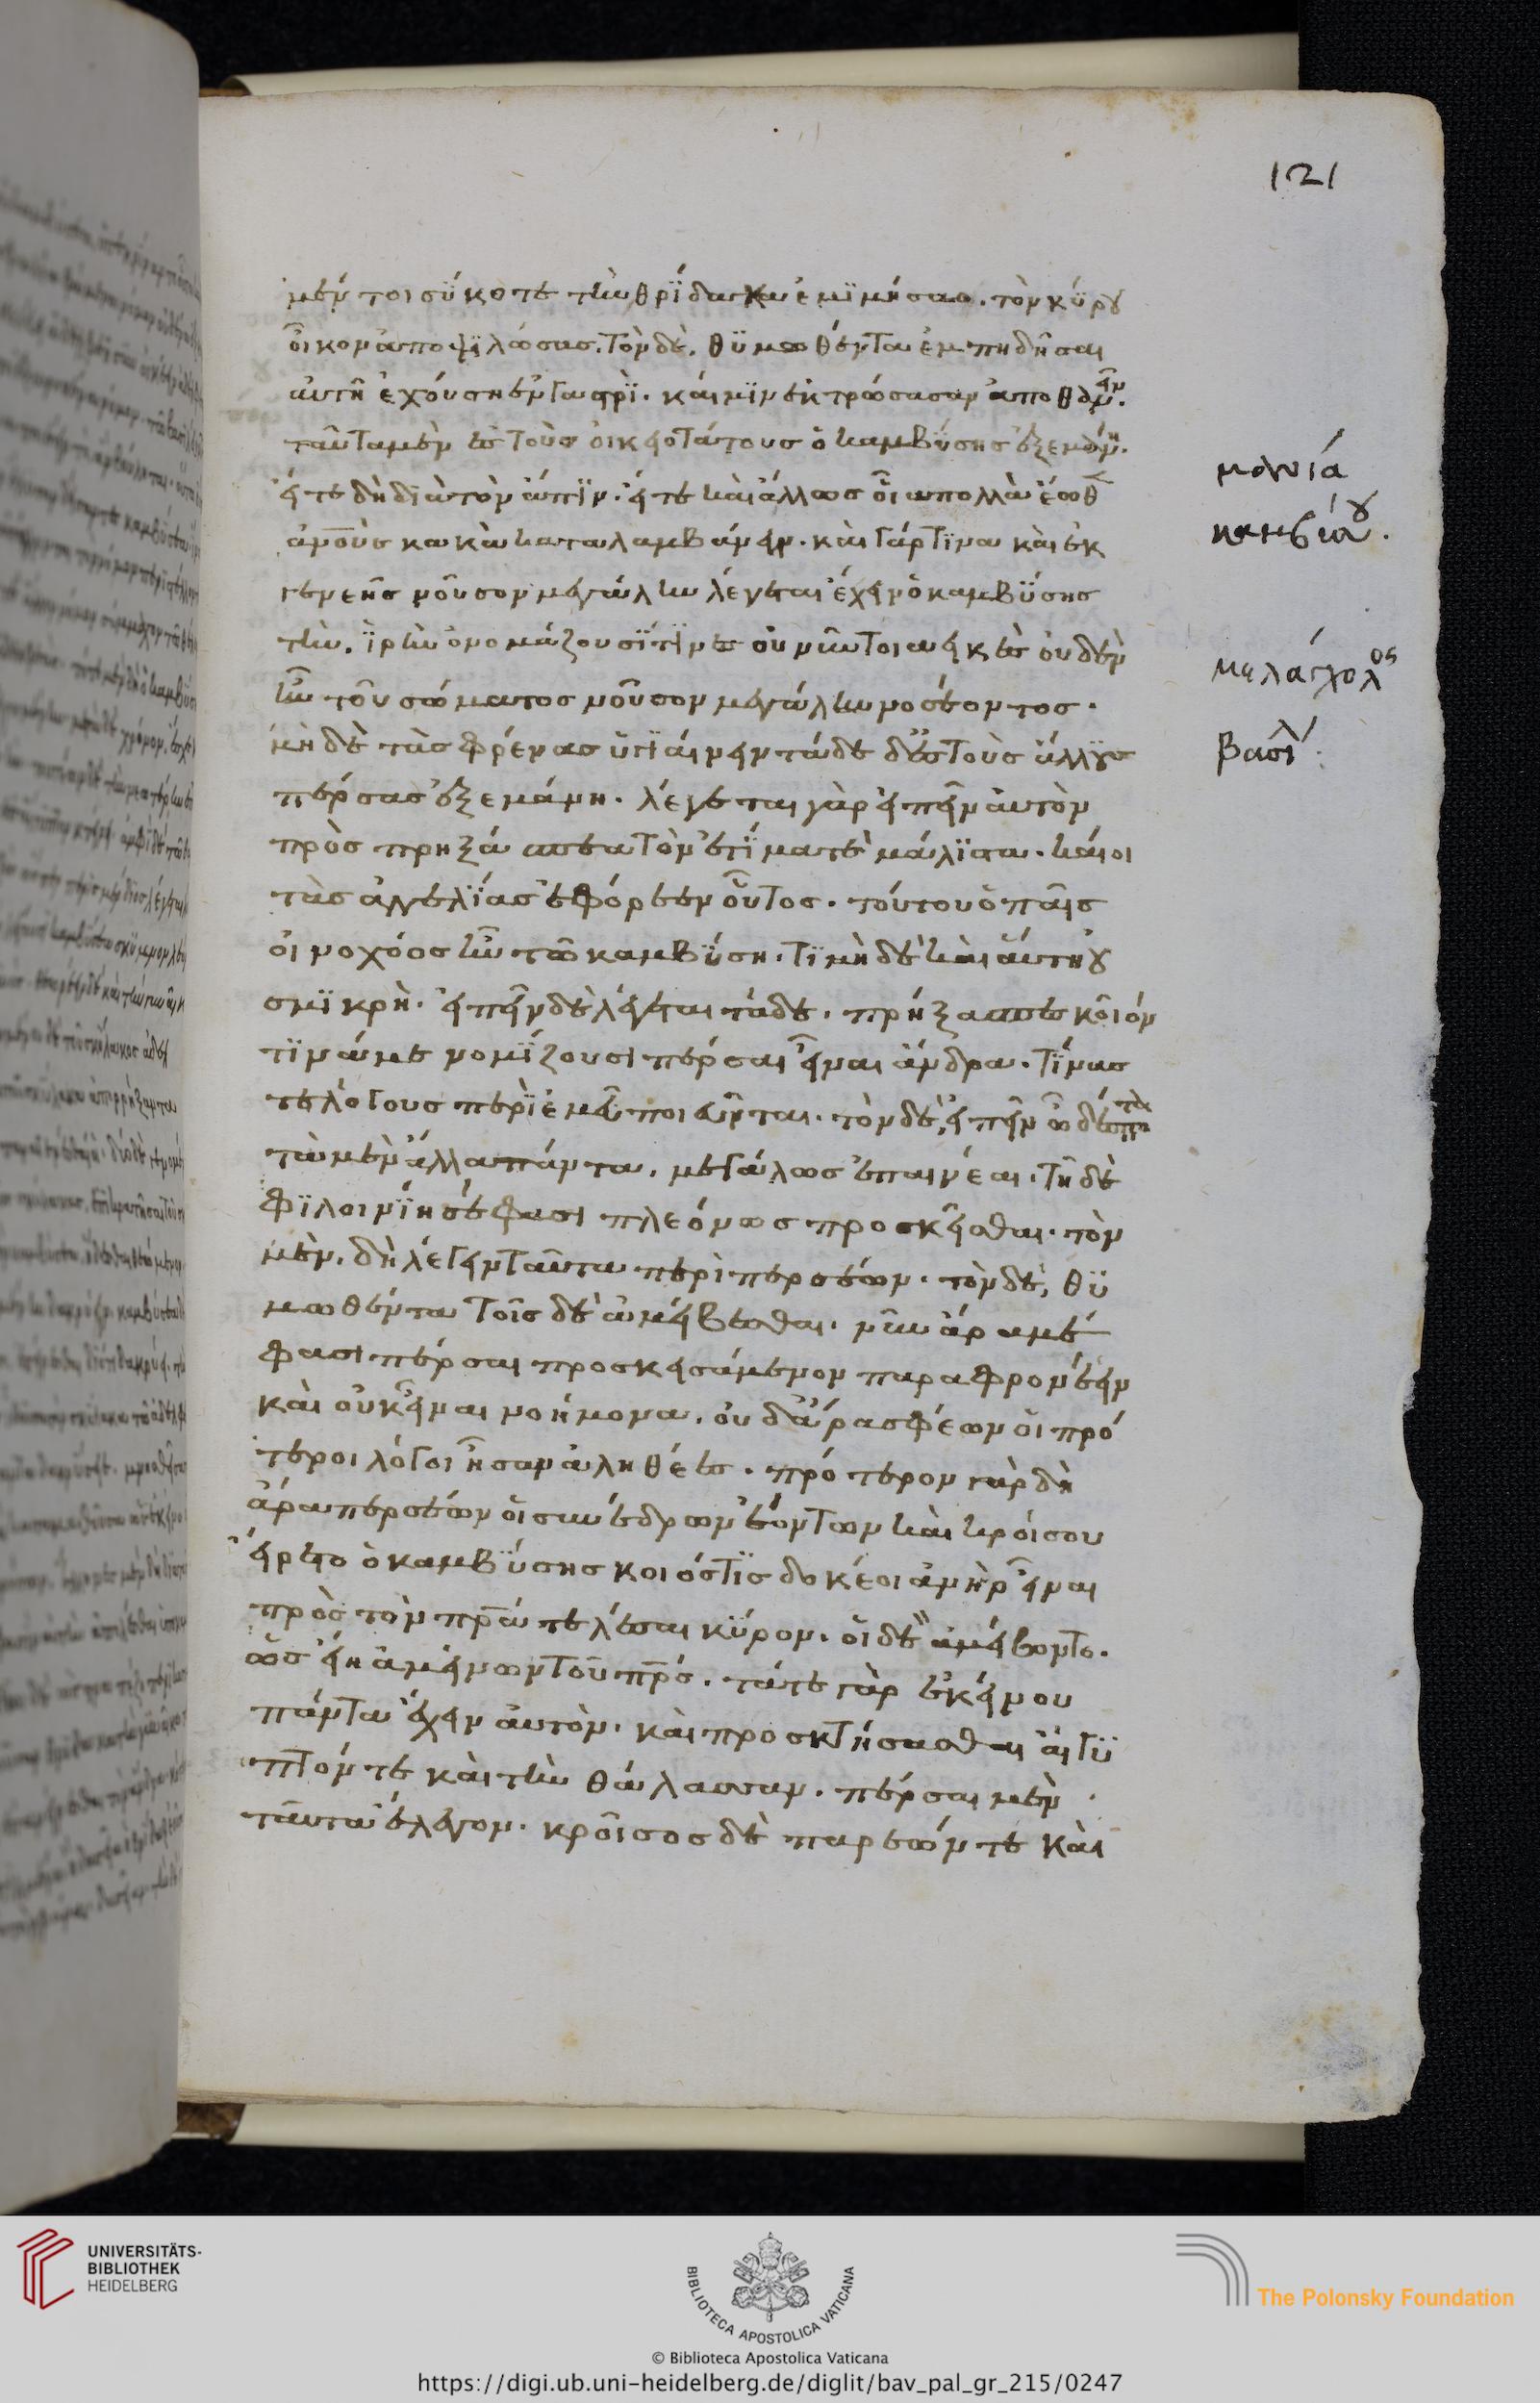 121
μέν τοι σύ κοτε τὴν θρίδακα ἐμιμήσαο. τὸν κύρου
οἶκον ἀποψιλώσας. τὸν δὲ, θυμωθέντα ἐμπηδῆσαι
αὐτῆ ἐχούση ἐν γαστρὶ. καί μιν ἐκτρώσασαν ἀποθανεῖν.
ταῦτα μὲν ἐς τοὺς οἰκειοτάτους ὁ καμβύσης ἐξεμάνη.
εἴτε δὴ διὰ τὸν ἄπιν. εἴτε καὶ ἄλλως οἷα πολλὰ ἔωθε
ἀνους κακὰ καταλαμβάνειν. καὶ γάρ τινα καὶ ἐκ
γενεῆς νοῦσον μεγάλην λέγεται ἔχειν ὁ καμβύσης
τὴν. ἱρὴν ὀνομάζουσί τινες οὔ νύν τοι ἀεικὲς οὐδὲν
ἦν τοῦ σώματος νοῦσον μεγάλην νοσέοντος.
μηδὲ τὰς φρένας ὑγιαίνειν τάδε δ' ἐς τοὺς ἄλλους
πέρσας ἐξεμάνη. λέγεται γὰρ εἰπεῖν αὐτὸν
πρὸς πρηξάσπεα τὸν ἐτίμα τε μάλιστα. καί οἱ
τὰς ἀγγελίας ἐφόρεεν οὗτος. τούτου ὁ παῖς
οἰνοχόος ἦν τῶ καμβύση. τιμὴ δὲ καὶ αὕτη οὐ
σμικρὴ. εἰπεῖν δὲ λέγεται τάδε. πρήξασπες κοῖόν
τινά με νομίζουσι πέρσαι εἶναι ἄνδρα. τίνας
τε λόγους περὶ ἐμεῦ ποιεῦνται. τὸν δὲ, εἰπεῖν ὦ δέσποτα
τὰ μὲν ἄλλα πάντα, μεγάλως ἐπαινέαι. τῆ δὲ
φιλοινίη σέ φασι πλεόνως προσκεῖσθαι. τὸν
μὲν. δὴ λέγειν ταῦτα περὶ περσέων. τὸν δὲ, θυ
μωθέντα τοῖσδε ἀμείβεσθαι. νῦν ἄρα μέ
φασι πέρσαι προσκεισάμενον παραφρονέειν
καὶ οὐκ εἶναι νοήμονα. οὐδ' ἄρα σφέων οἱ πρό
τεροι λόγοι ἦσαν ἀληθέες. πρότερον γὰρ δὴ
ἄρα περσέων οἱ συνέδρων ἐόντων καὶ κροίσου
εἴρετο ὁ καμβύσης κοιός τις δοκέοι ἀνὴρ εἶναι
πρὸς τὸν πρα τελέσαι κύρον. οἱ δὲ ἀμείβοντο.
ὡς εἴη ἀμείνων τοῦ πρς. τά τε γὰρ ἐκείνου
πάντα ἔχειν αὐτὸν. καὶ προσκτήσασθαι αἴγυ
πτόν τε καὶ τὴν θάλασσαν. πέρσαι μὲν
ταῦτα ἔλεγον. κροῖσος δὲ παρεών τε καὶ
μανία
καμβύσου.
μελάγχολος
βασιλ:
UNIVERSITÄTS-
BIBLIOTHEK
HEIDELBERG
BIBLIOTECA APOSTOLICA VATICANA
The Polonsky Foundation
© Biblioteca Apostolica Vaticana
https://digi.ub.uni-heidelberg.de/diglit/bav_pal_gr_215/0247